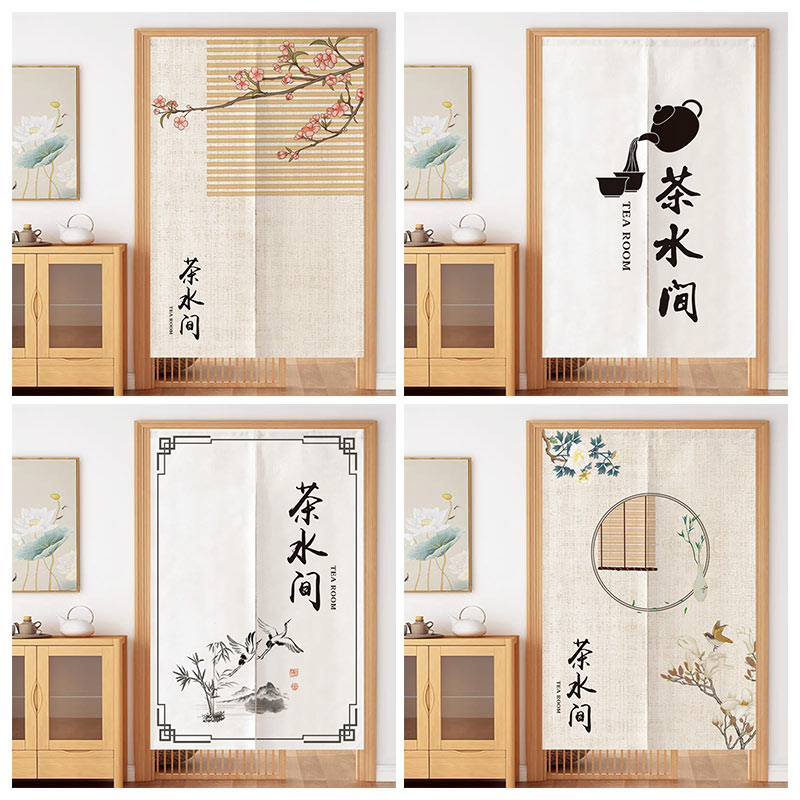 茶水间
TEA ROOM
茶水间
TEA ROOM
茶水间
TEA ROOM
茶水间
TEA ROOM